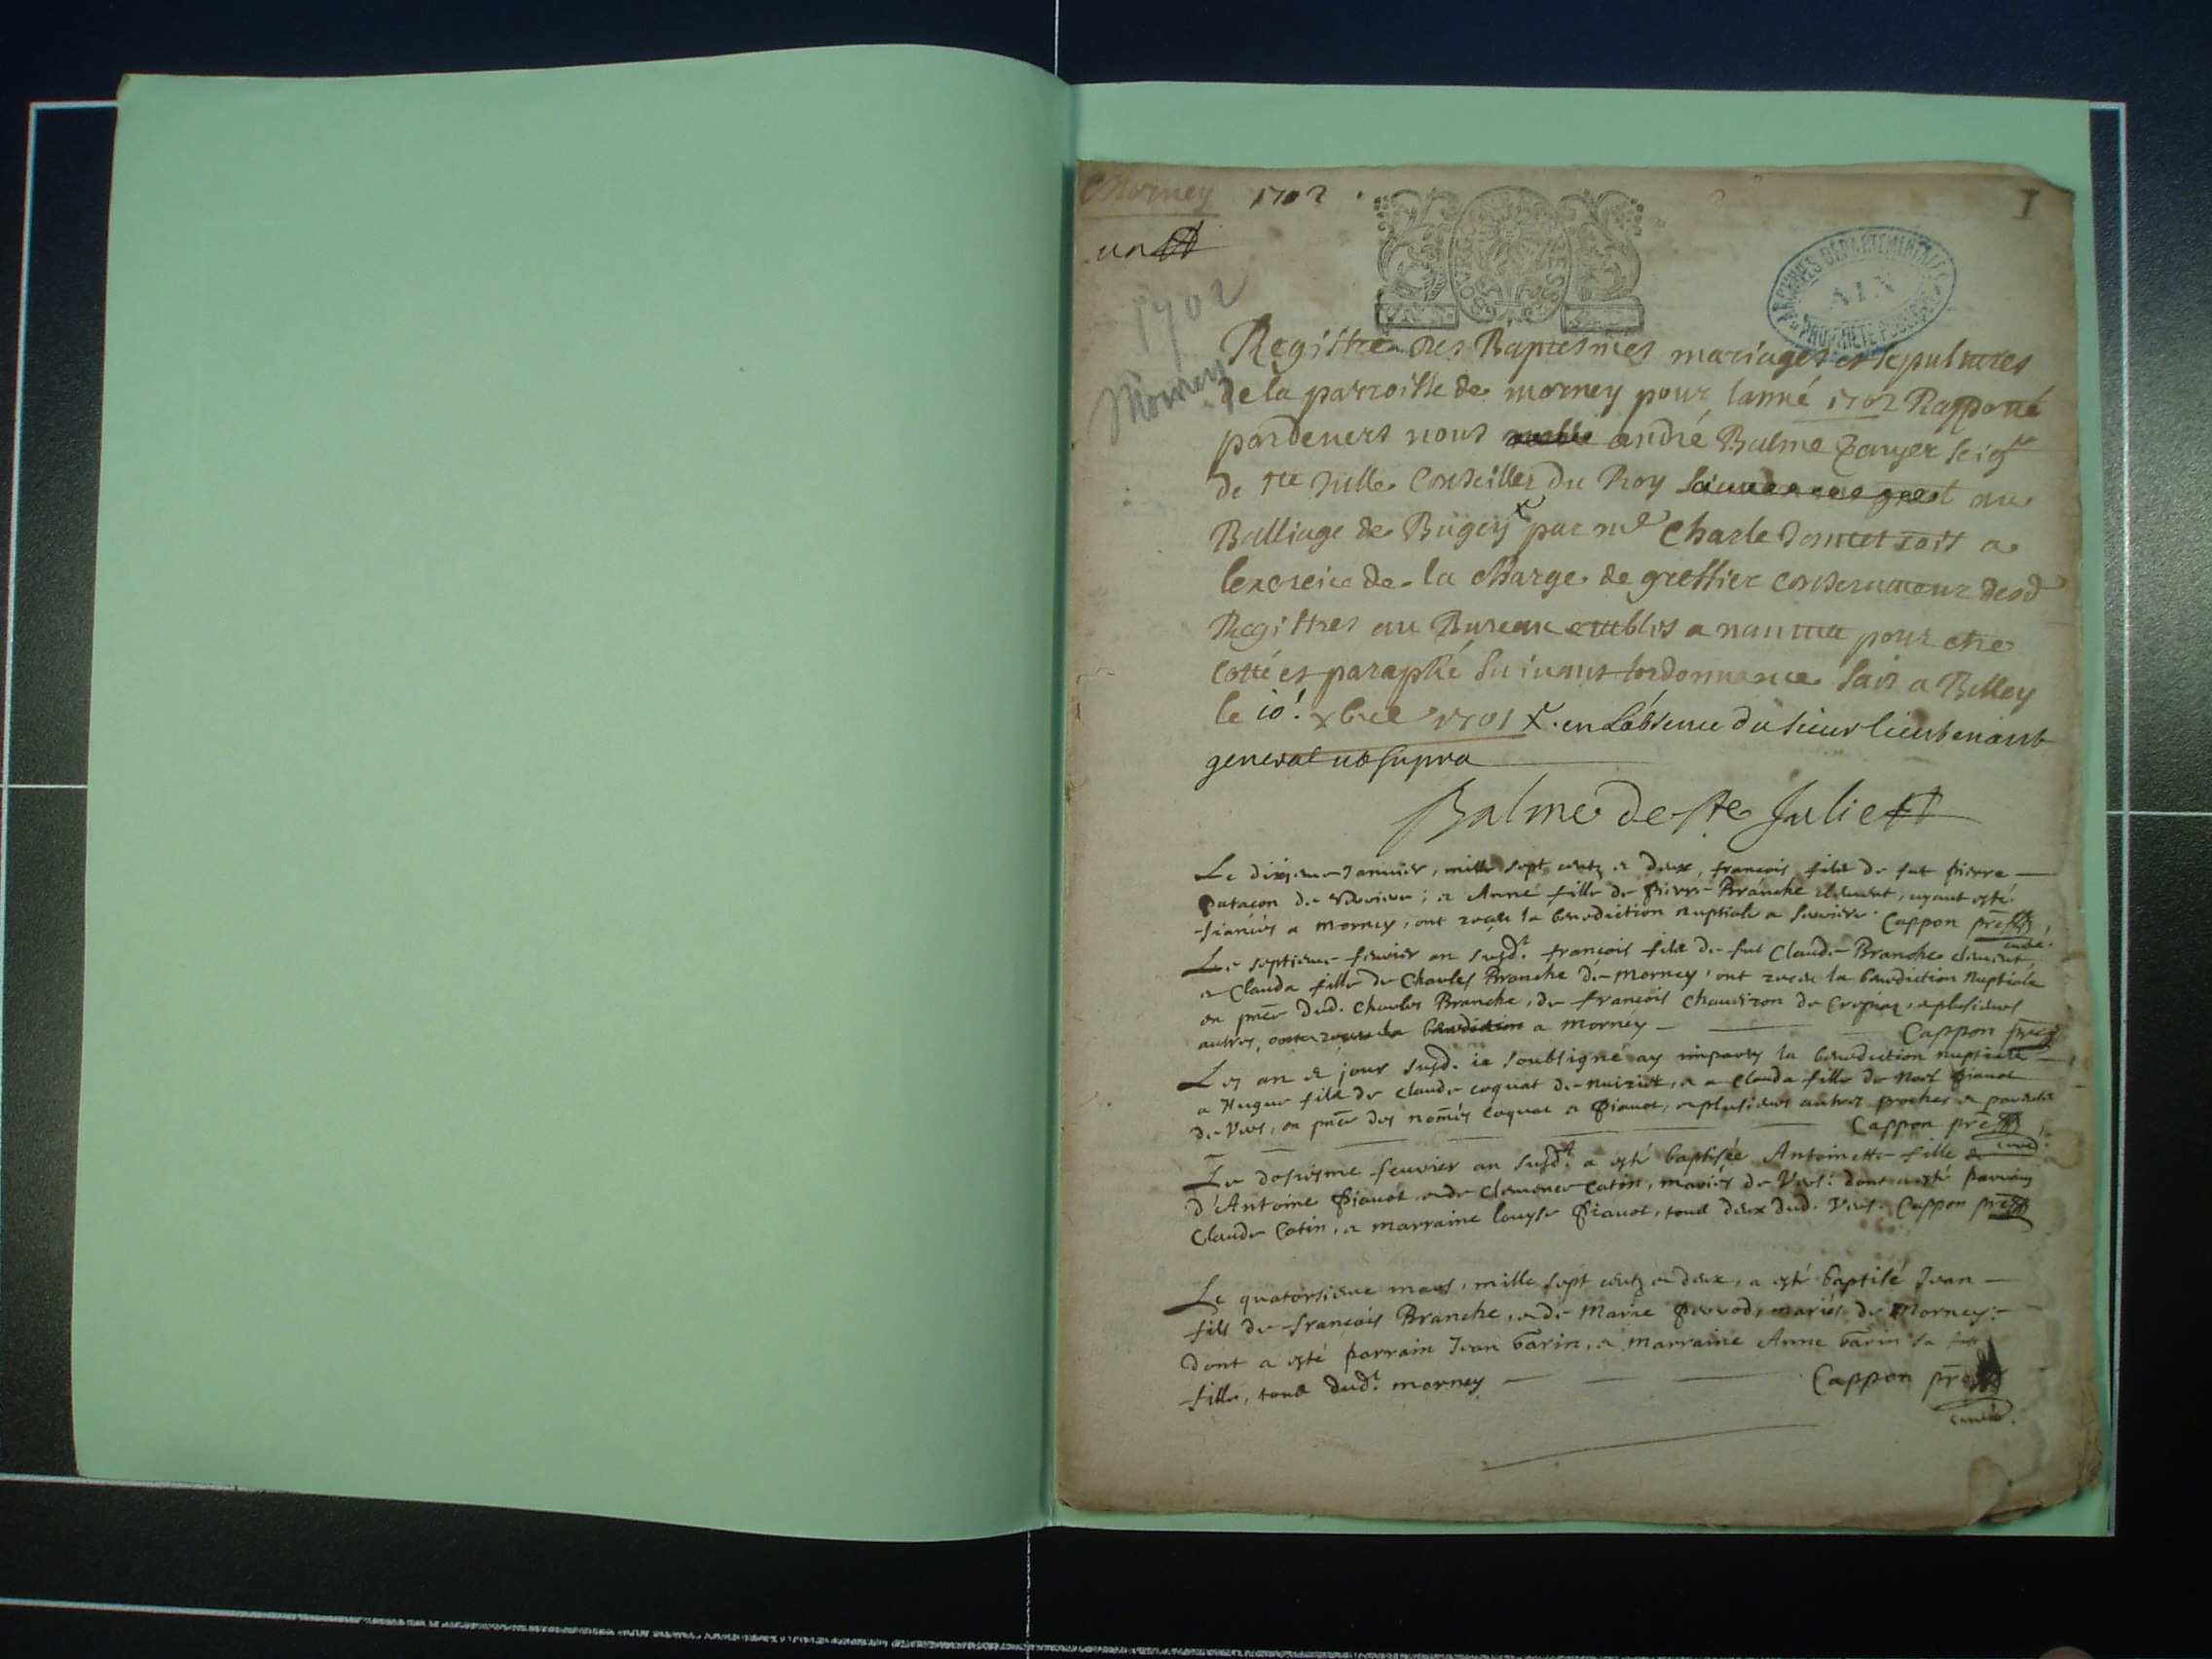 Morney 1702
1
un
1702
Morney
ARCHIVES DEPARTEMENTALES
AIN
PROPRIETE PUBLIQUE
BOURG BRESSE
Registre des Baptesmes mariages et sepultures
de la parroisse de morney pour lanné 1702 Rapporté
pardevers nous andré Balme Seigr
de ste Julle Conseiller du Roy au
Balliage de Bugey x par me Charle
lexercice de la Charge de greffier conservateur desd
Registres au Bureau establis a nantua pour etre
Cotté et paraphé suivant lordonnance fait a Belley
le 10e xbre 1701 x en Labsence du sieur lieutenant
general ut supra
Balme de ste Julie
Le dixieme Janvier, mille sept centz et deux, francois filz de fut pierre
putaçon de ; et Anne fille de Pierre Branche , ayant esté
fiancés a Morney, ont receu la benediction nuptiale a Cappon
curé.
Le septieme feuvier an susd. françois filz de fut Claude Branche
et Clauda fille de Charles Branche de Morney, ont receu la benediction Nuptiale
en pnce dud. Charles Branche, de françois de , et plusieurs
autres, a Morney Cappon
Les an et jour susd. ie soubsigné ay imparty la benediction nuptiale
a Hugue filz de Claude coquat de , et a Clauda fille de Noel Pianot
de Vers, en pnce des només Coquat et Pianot, et plusieurs autres proches et parents
Cappon
curé.
Le feuvier an susdt a esté baptisée Antoinette fille
d'Antoine Pianot et de Clemence Catin, mariés de Vers: dont a esté parrain
Claude Catin, et marraine louyse Pianot, tous deux dud. Vers. Cappon
Le quatorsieme mars, mille sept centz et deux, a esté baptisé Jean
fils de françois Branche, et de Marie , mariés de Morney:
dont a esté parrain Jean Garin, et marraine Anne Garin sa
fille, tous dudt morney Cappon
curé.